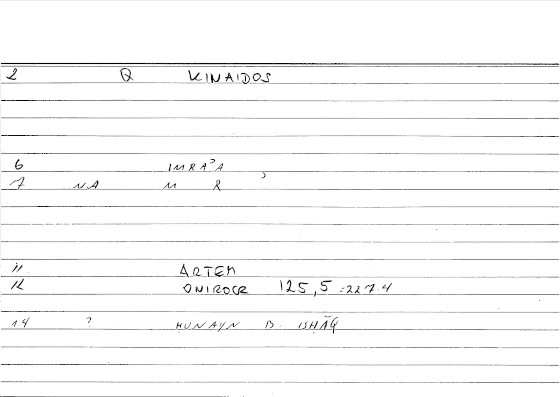 2 Q KINAIDOS
6 IMRAʾA
7 NA M R ʾ
11 ARTEM
12 ONIROCR 125,5 : 227.4
14 ? ḤUNAYN B. ISḤĀQ